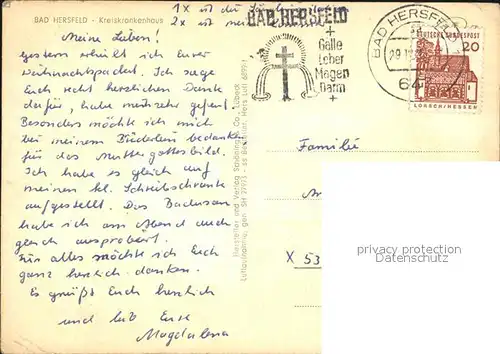 BAD HERSFELD - Kreiskrankenhaus
1x ist der
2x ist mein
Meine Lieben!
Gestern erhielt ich Euer
Weihnachtspacket. Ich sage
Euch recht herzlichen Dank
dafür, habe mich sehr gefreut
Besonders möchte ich mich
bei meinem Brüderlein bedanken
für das Muttergottesbild.
Ich habe es gleich auf
meinen kl. Schreibschrank
aufgestellt. Das Badusan
habe ich am Abend auch
gleich ausprobiert.
Für alles möchte ich Euch
ganz herzlich danken.
Es grüßt Euch herzlich
und lieb Eure
Magdalena
Hersteller und Verlag Schöning & Co., Lübeck
Luftaufnahme, gen. SH
BAD HERSFELD
Galle
Leber
Magen
Darm
BAD HERSFELD
29.12
64
DEUTSCHE BUNDESPOST
20
LORSCH/HESSEN
Familie
X 53
privacy protection
Datenschutz